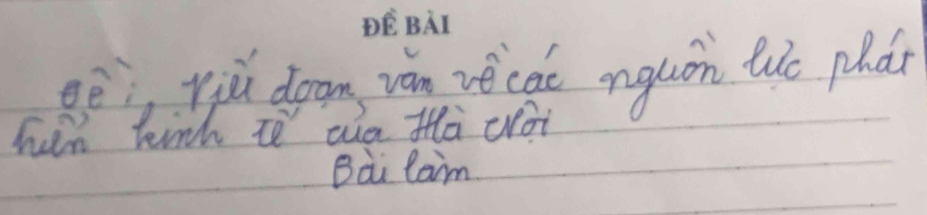 ĐỀ BÀI
Đề: Viết đoạn văn về các nguồn lực phát
triển kinh tế của Hà Nội
Bài làm